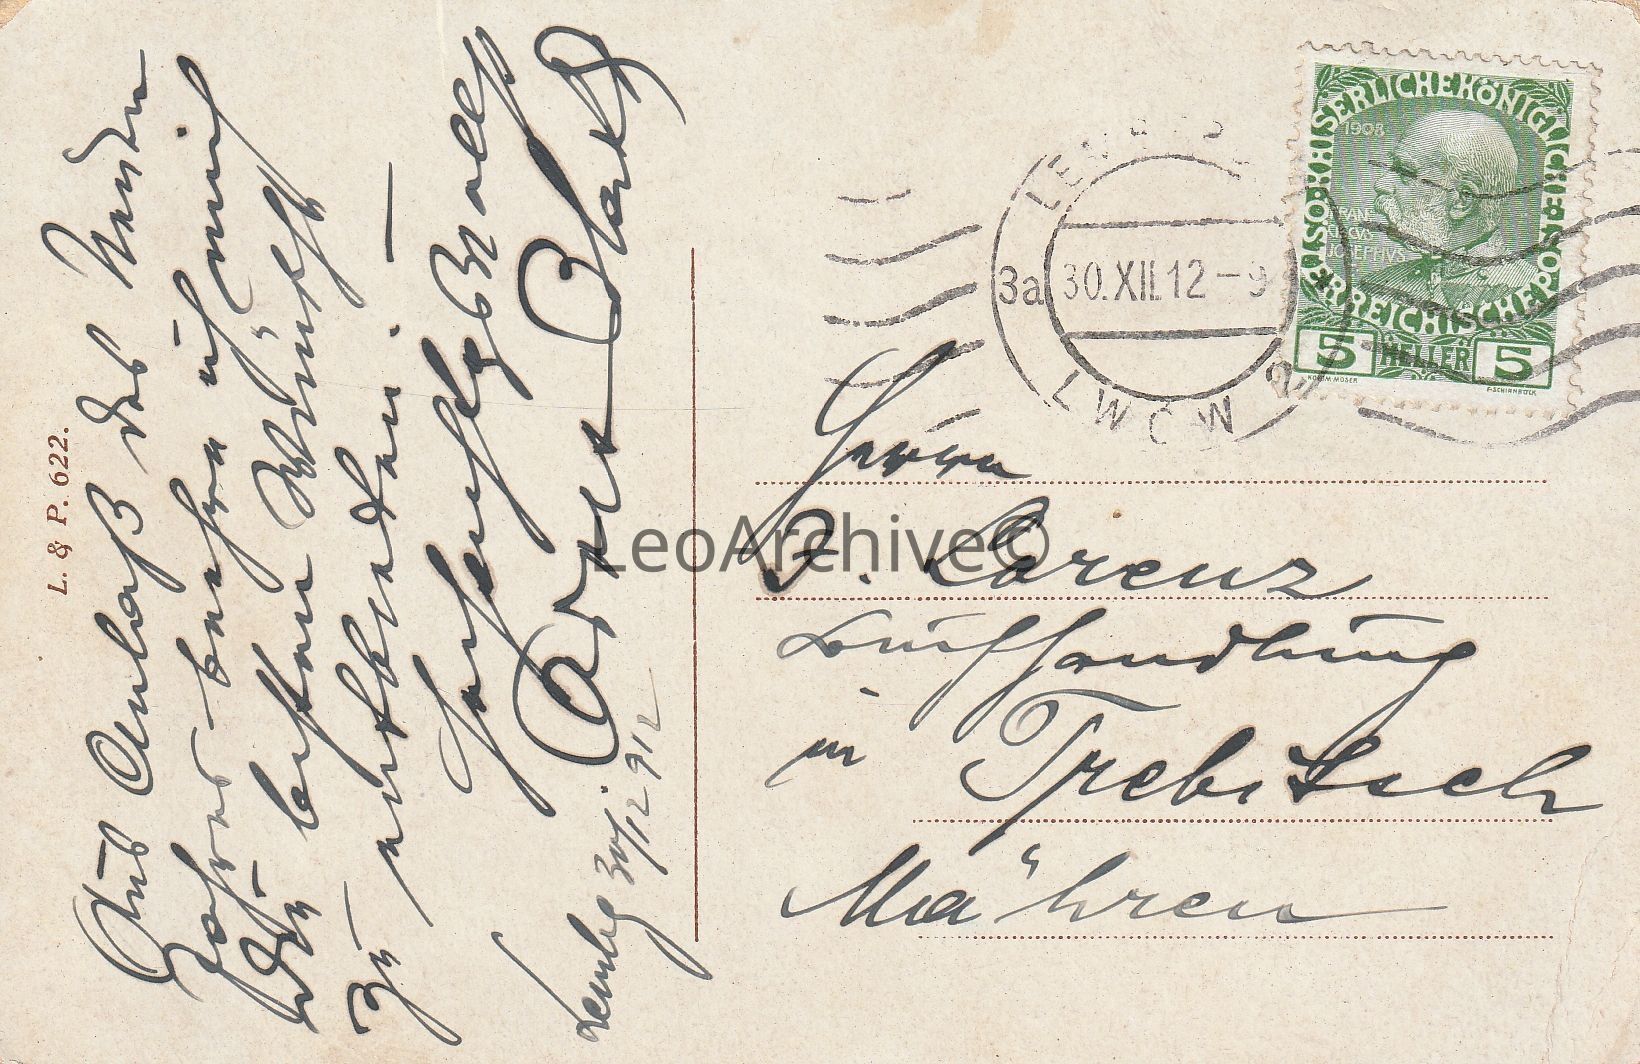 Aus Anlaß des Neuen
Jahres beehre ich mich
die besten Wünsche
zu entbieten. —
Hochachtungsvoll
Lemberg 30/12 912
L. & P. 622.
LEMBERG
3a 30.XII.12 - 9
LWÓW 2
KAISERLICHE KÖNIGLICHE ÖSTERREICHISCHE POST
1908
FRANCISCVS JOSEPHVS
5 HELLER 5
KOLOM. MOSER
F. SCHIRNBÖCK
Herrn
J. Lorenz
in Trebitsch
Mähren
LeoArchive©